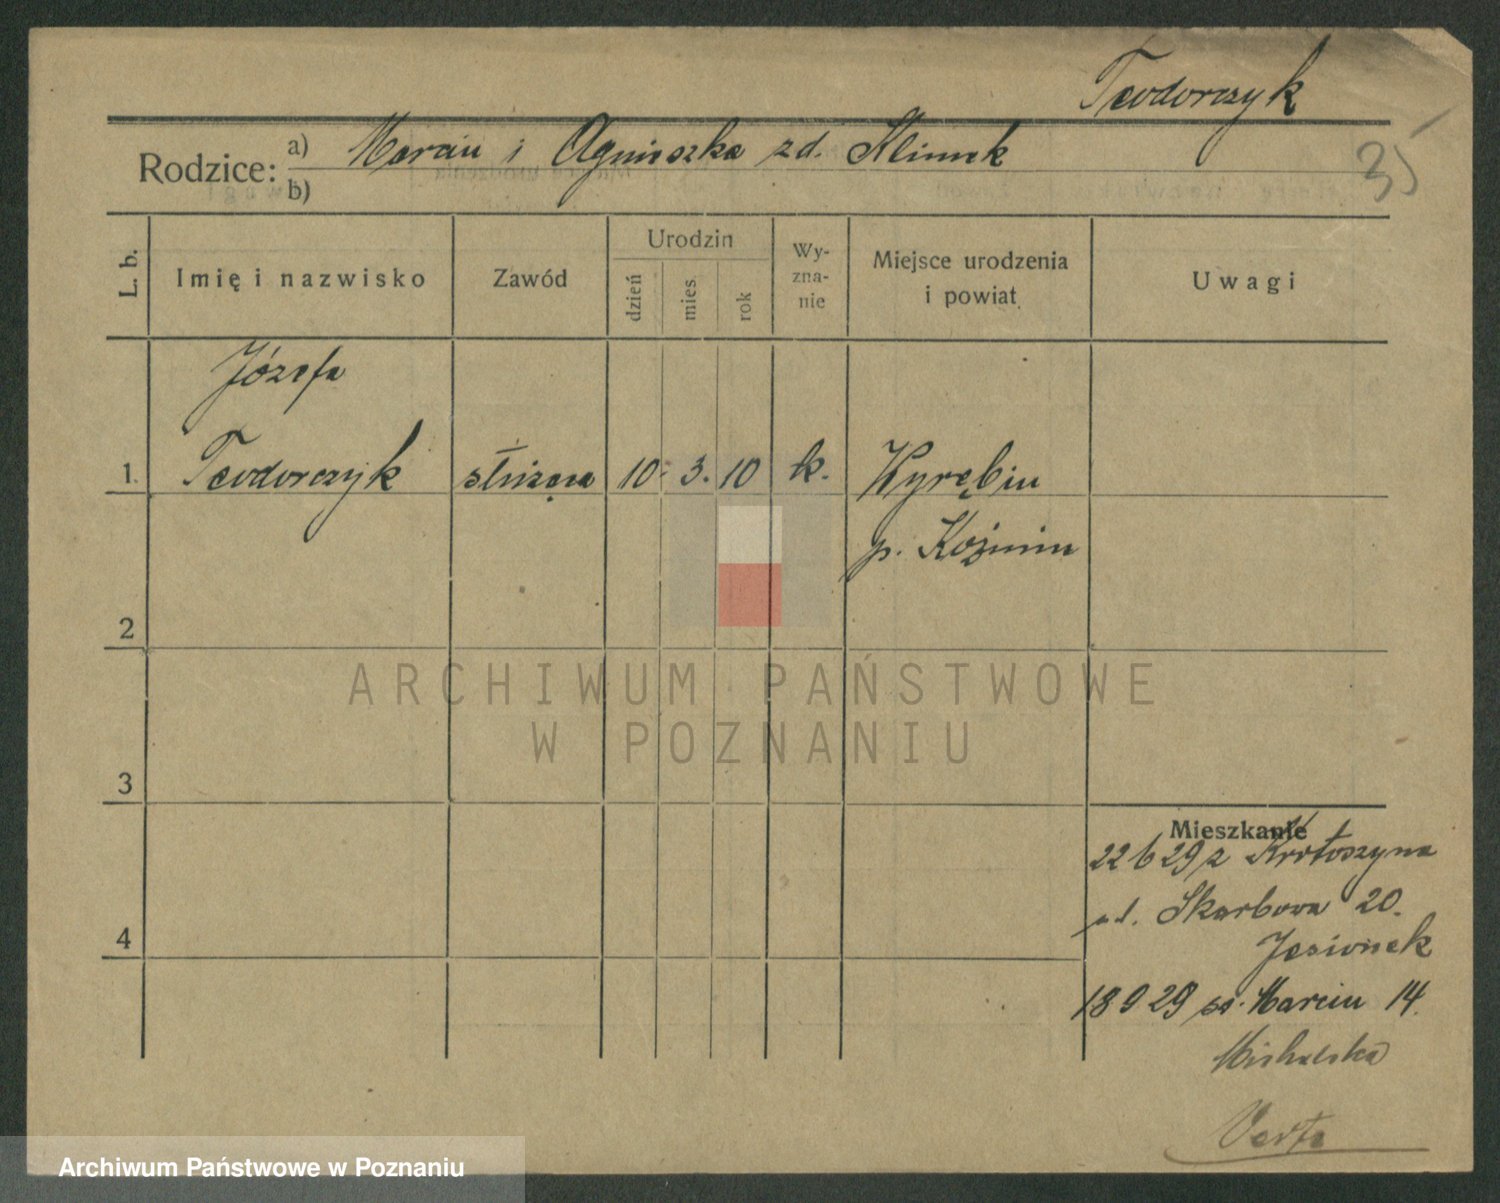 Teodorczyk
35
Rodzice: a) Marcin i Agnieszka zd. Klimek
b)
L. b.
Imię i nazwisko
Zawód
Urodzin
dzień
mies
rok
Wy-
zna-
nie
Miejsce urodzenia
i powiat
Uwagi
Józefa
1. Teodorczyk służąca 10. 3. 10 k. Wyrębin
p. Koźmin
2
3
4
ARCHIWUM PAŃSTWOWE
W POZNANIU
Mieszkanie
22 6 29 z Krotoszyna
ul. Skarbowa 20.
Jesionek
18 9 29 św. Marcin 14.
Michalska
Verte
Archiwum Państwowe w Poznaniu